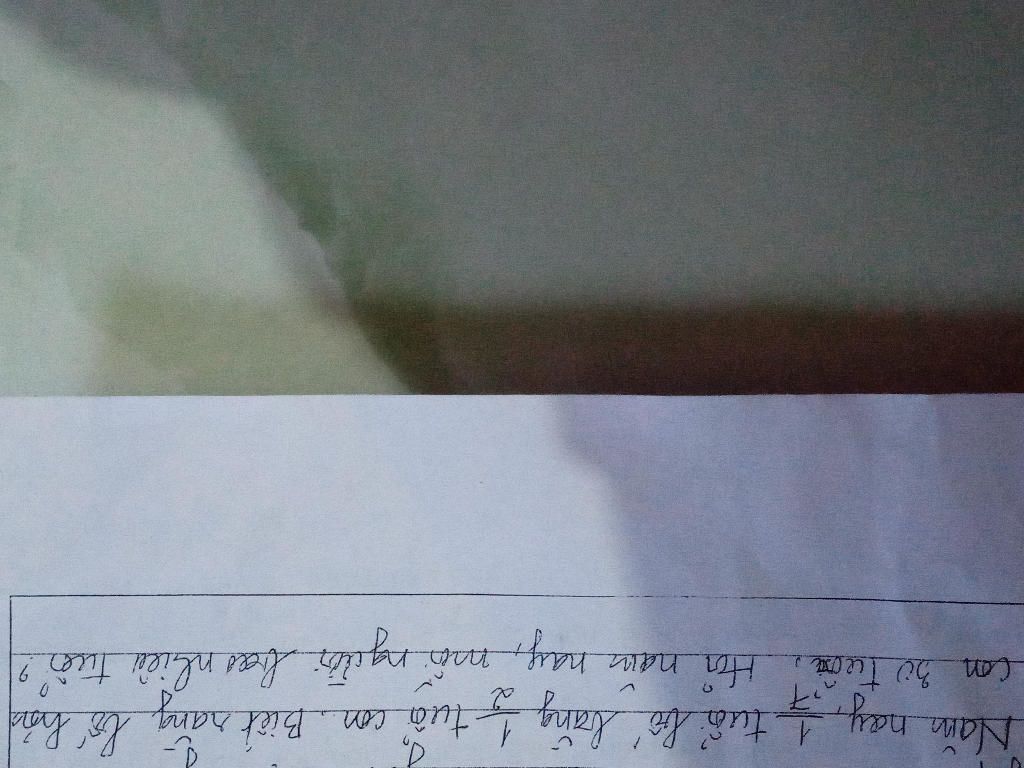 Năm nay, 1/7 tuổi bố bằng 1/2 tuổi con. Biết rằng bố hơn
con 30 tuổi. Hỏi năm nay, mỗi người bao nhiêu tuổi?